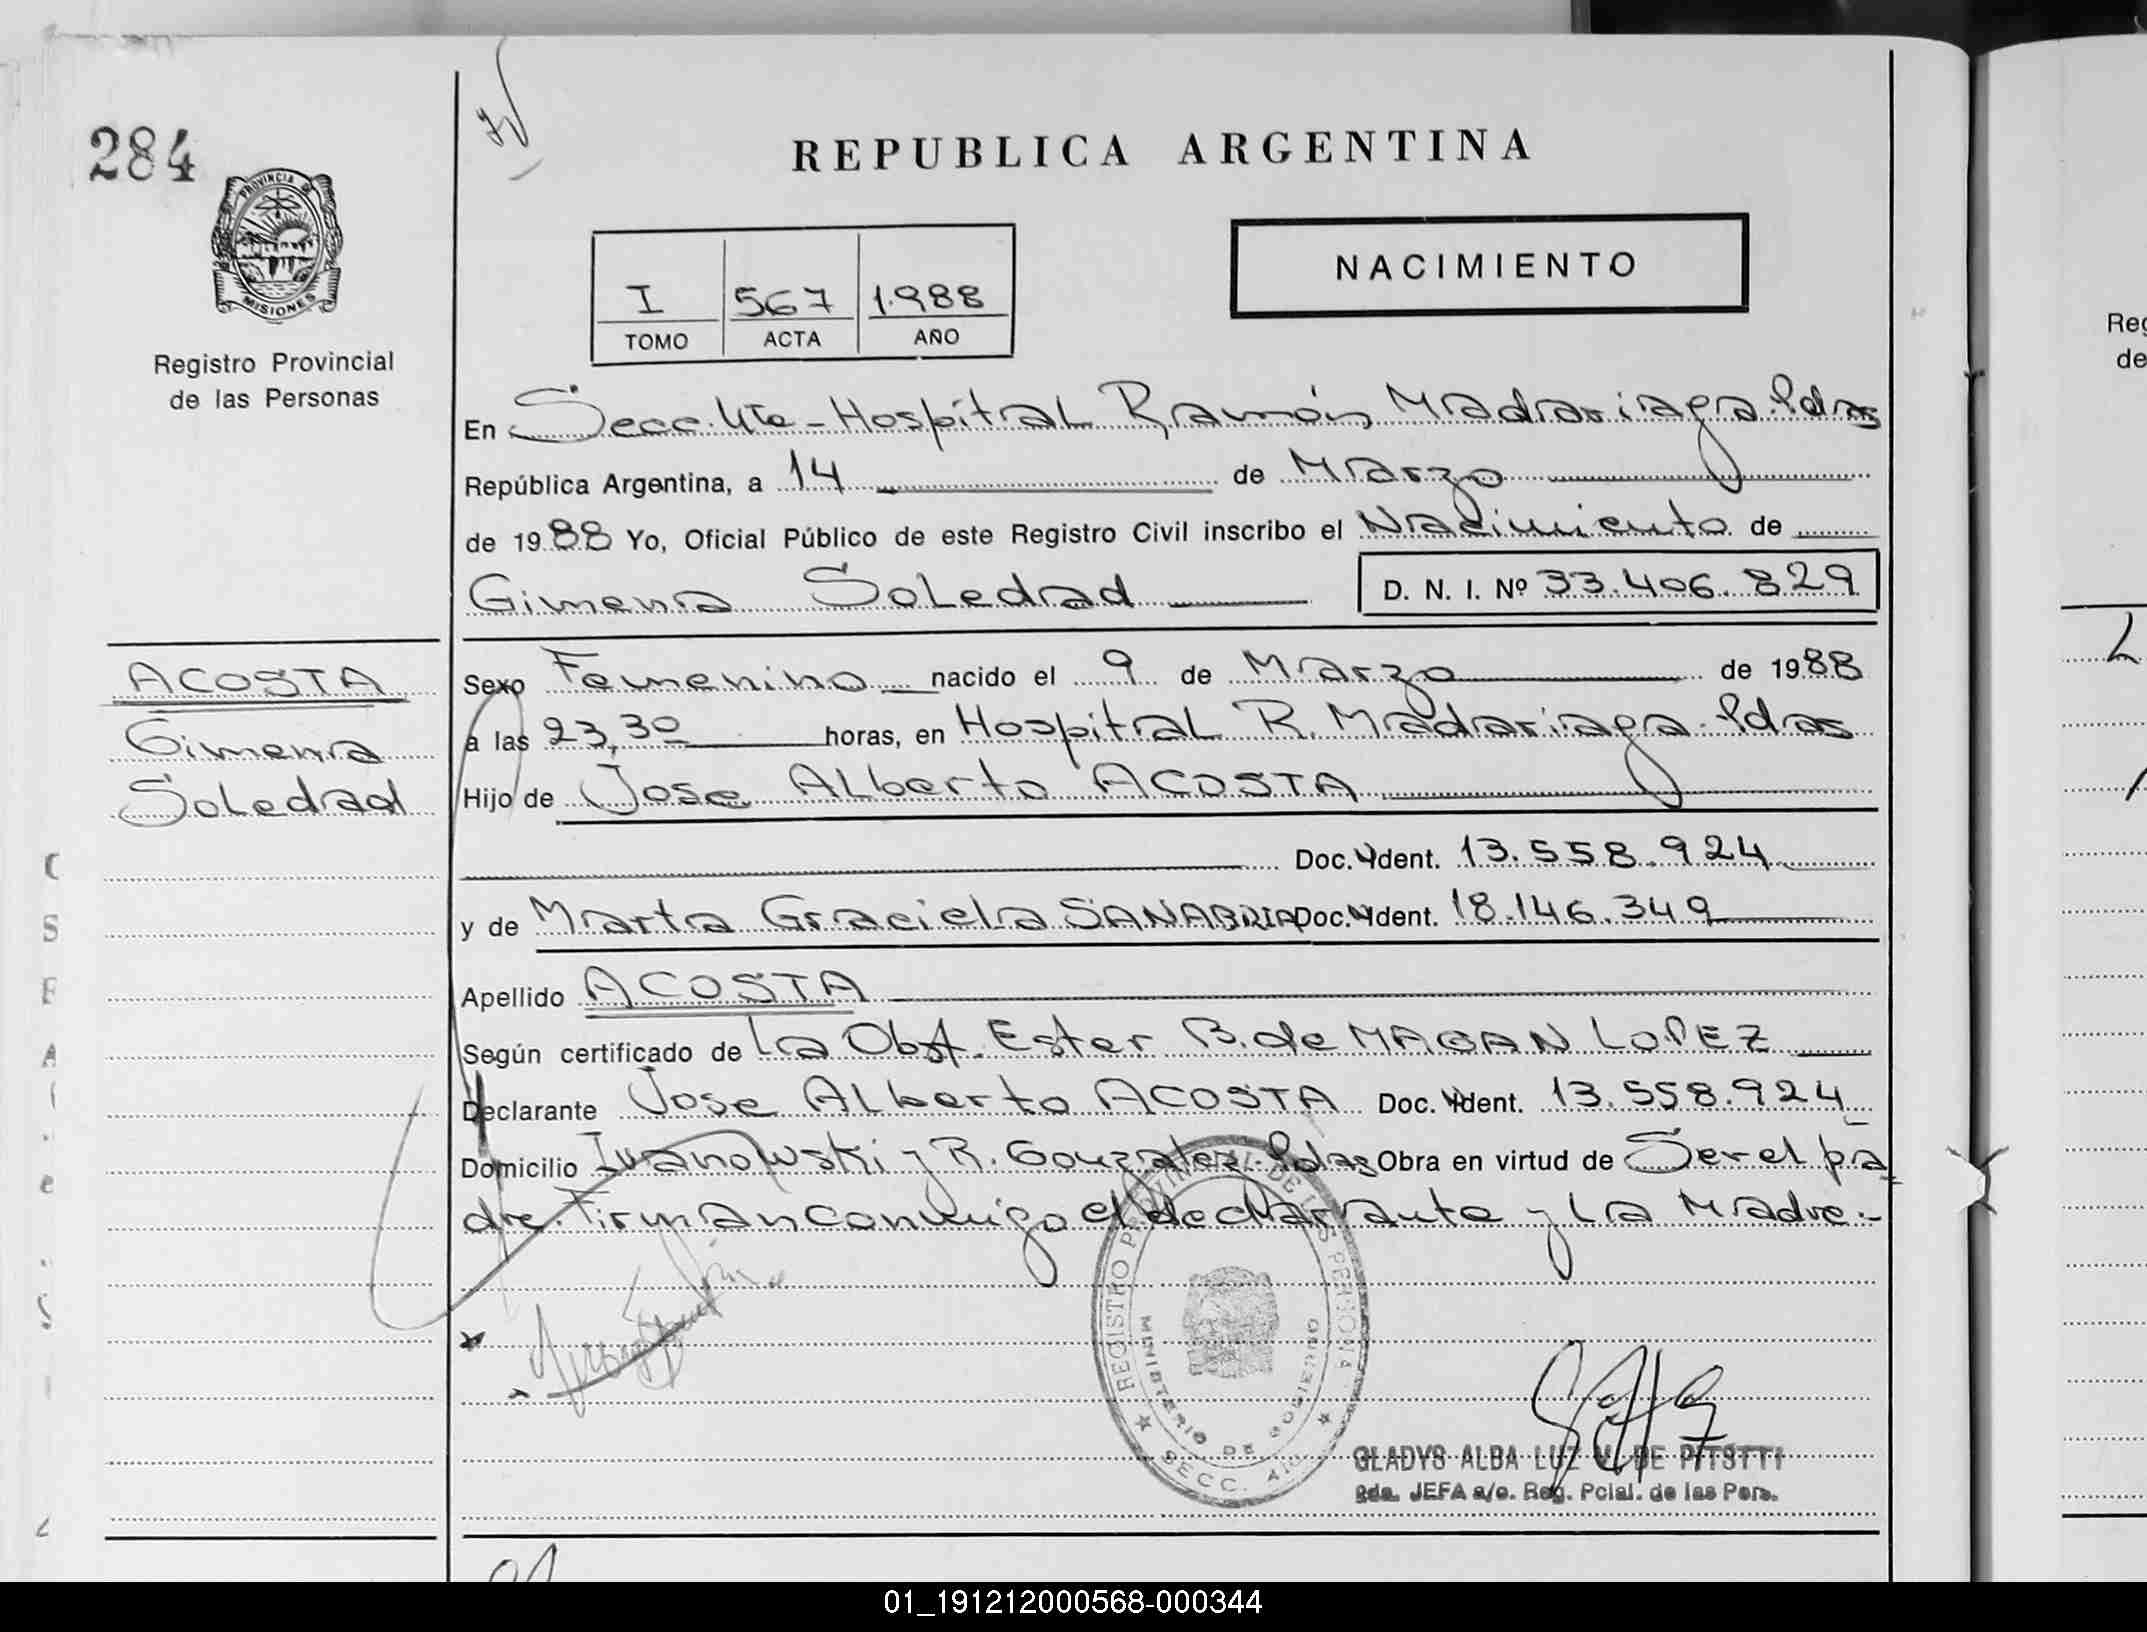 284
PROVINCIA DE
MISIONES
Registro Provincial
de las Personas
REPUBLICA ARGENTINA
I 567 1988
TOMO ACTA AÑO
NACIMIENTO
En Secc. 4ta - Hospital Ramón Madariaga. Pdas
República Argentina, a 14 de Marzo
de 1988 Yo, Oficial Público de este Registro Civil inscribo el Nacimiento de
Gimena Soledad D. N. I. Nº 33.406.829
ACOSTA
Gimena
Soledad
Sexo Femenino nacido el 9 de Marzo de 1988
a las 23,30 horas, en Hospital R. Madariaga. Pdas
Hijo de Jose Alberto ACOSTA
Doc. Ident. 13.558.924
y de Marta Graciela SANABRIA Doc. Ident. 18.146.349
Apellido ACOSTA
Según certificado de La Obst. Ester B. de MAGAN LOPEZ
Declarante Jose Alberto ACOSTA Doc. Ident. 13.558.924
Domicilio Ivanowski y R. Gonzalez. Pdas Obra en virtud de Ser el pa
dre. Firman conmigo el declarante y la Madre.-
REGISTRO PROVINCIAL DE LAS PERSONAS
MINISTERIO DE GOBIERNO
SECC. 4ta.
GLADYS ALBA LUZ V. DE
2da. JEFA a/c. Reg. Pcial. de las Pers.
Reg
de
01_191212000568-000344